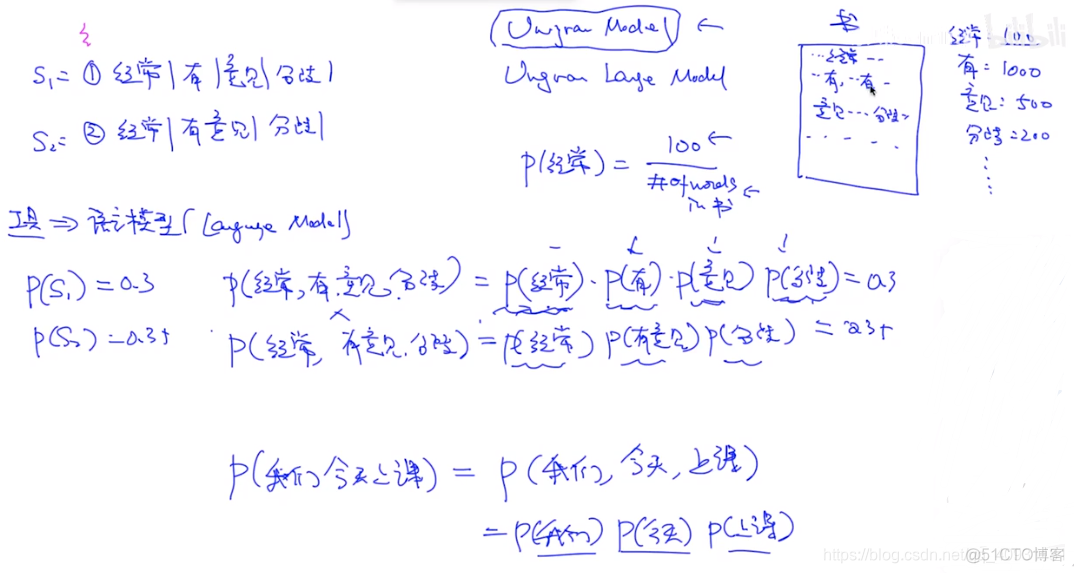 S₁= ① 经常|有|意见|分歧|
S₂= ② 经常|有意见|分歧|
工具 ⇒ 语言模型 (Language Model)
Unigram Model ←
Unigram Language Model
P(经常) = 100 ← / # of words in 书 ←
书
...经常...
..有, ..有 -
意见...分歧
经常: 100
有: 1000
意见: 500
分歧=200
P(S₁) = 0.3
P(经常,有,意见,分歧) = P(经常)·P(有)·P(意见) P(分歧) = 0.3
P(S₂) = 0.35
P(经常, 有意见,分歧) = P(经常) P(有意见) P(分歧) = 0.35
P(我们今天上课) = P(我们, 今天, 上课)
= P(我们) P(今天) P(上课)
bilibili
@51CTO博客